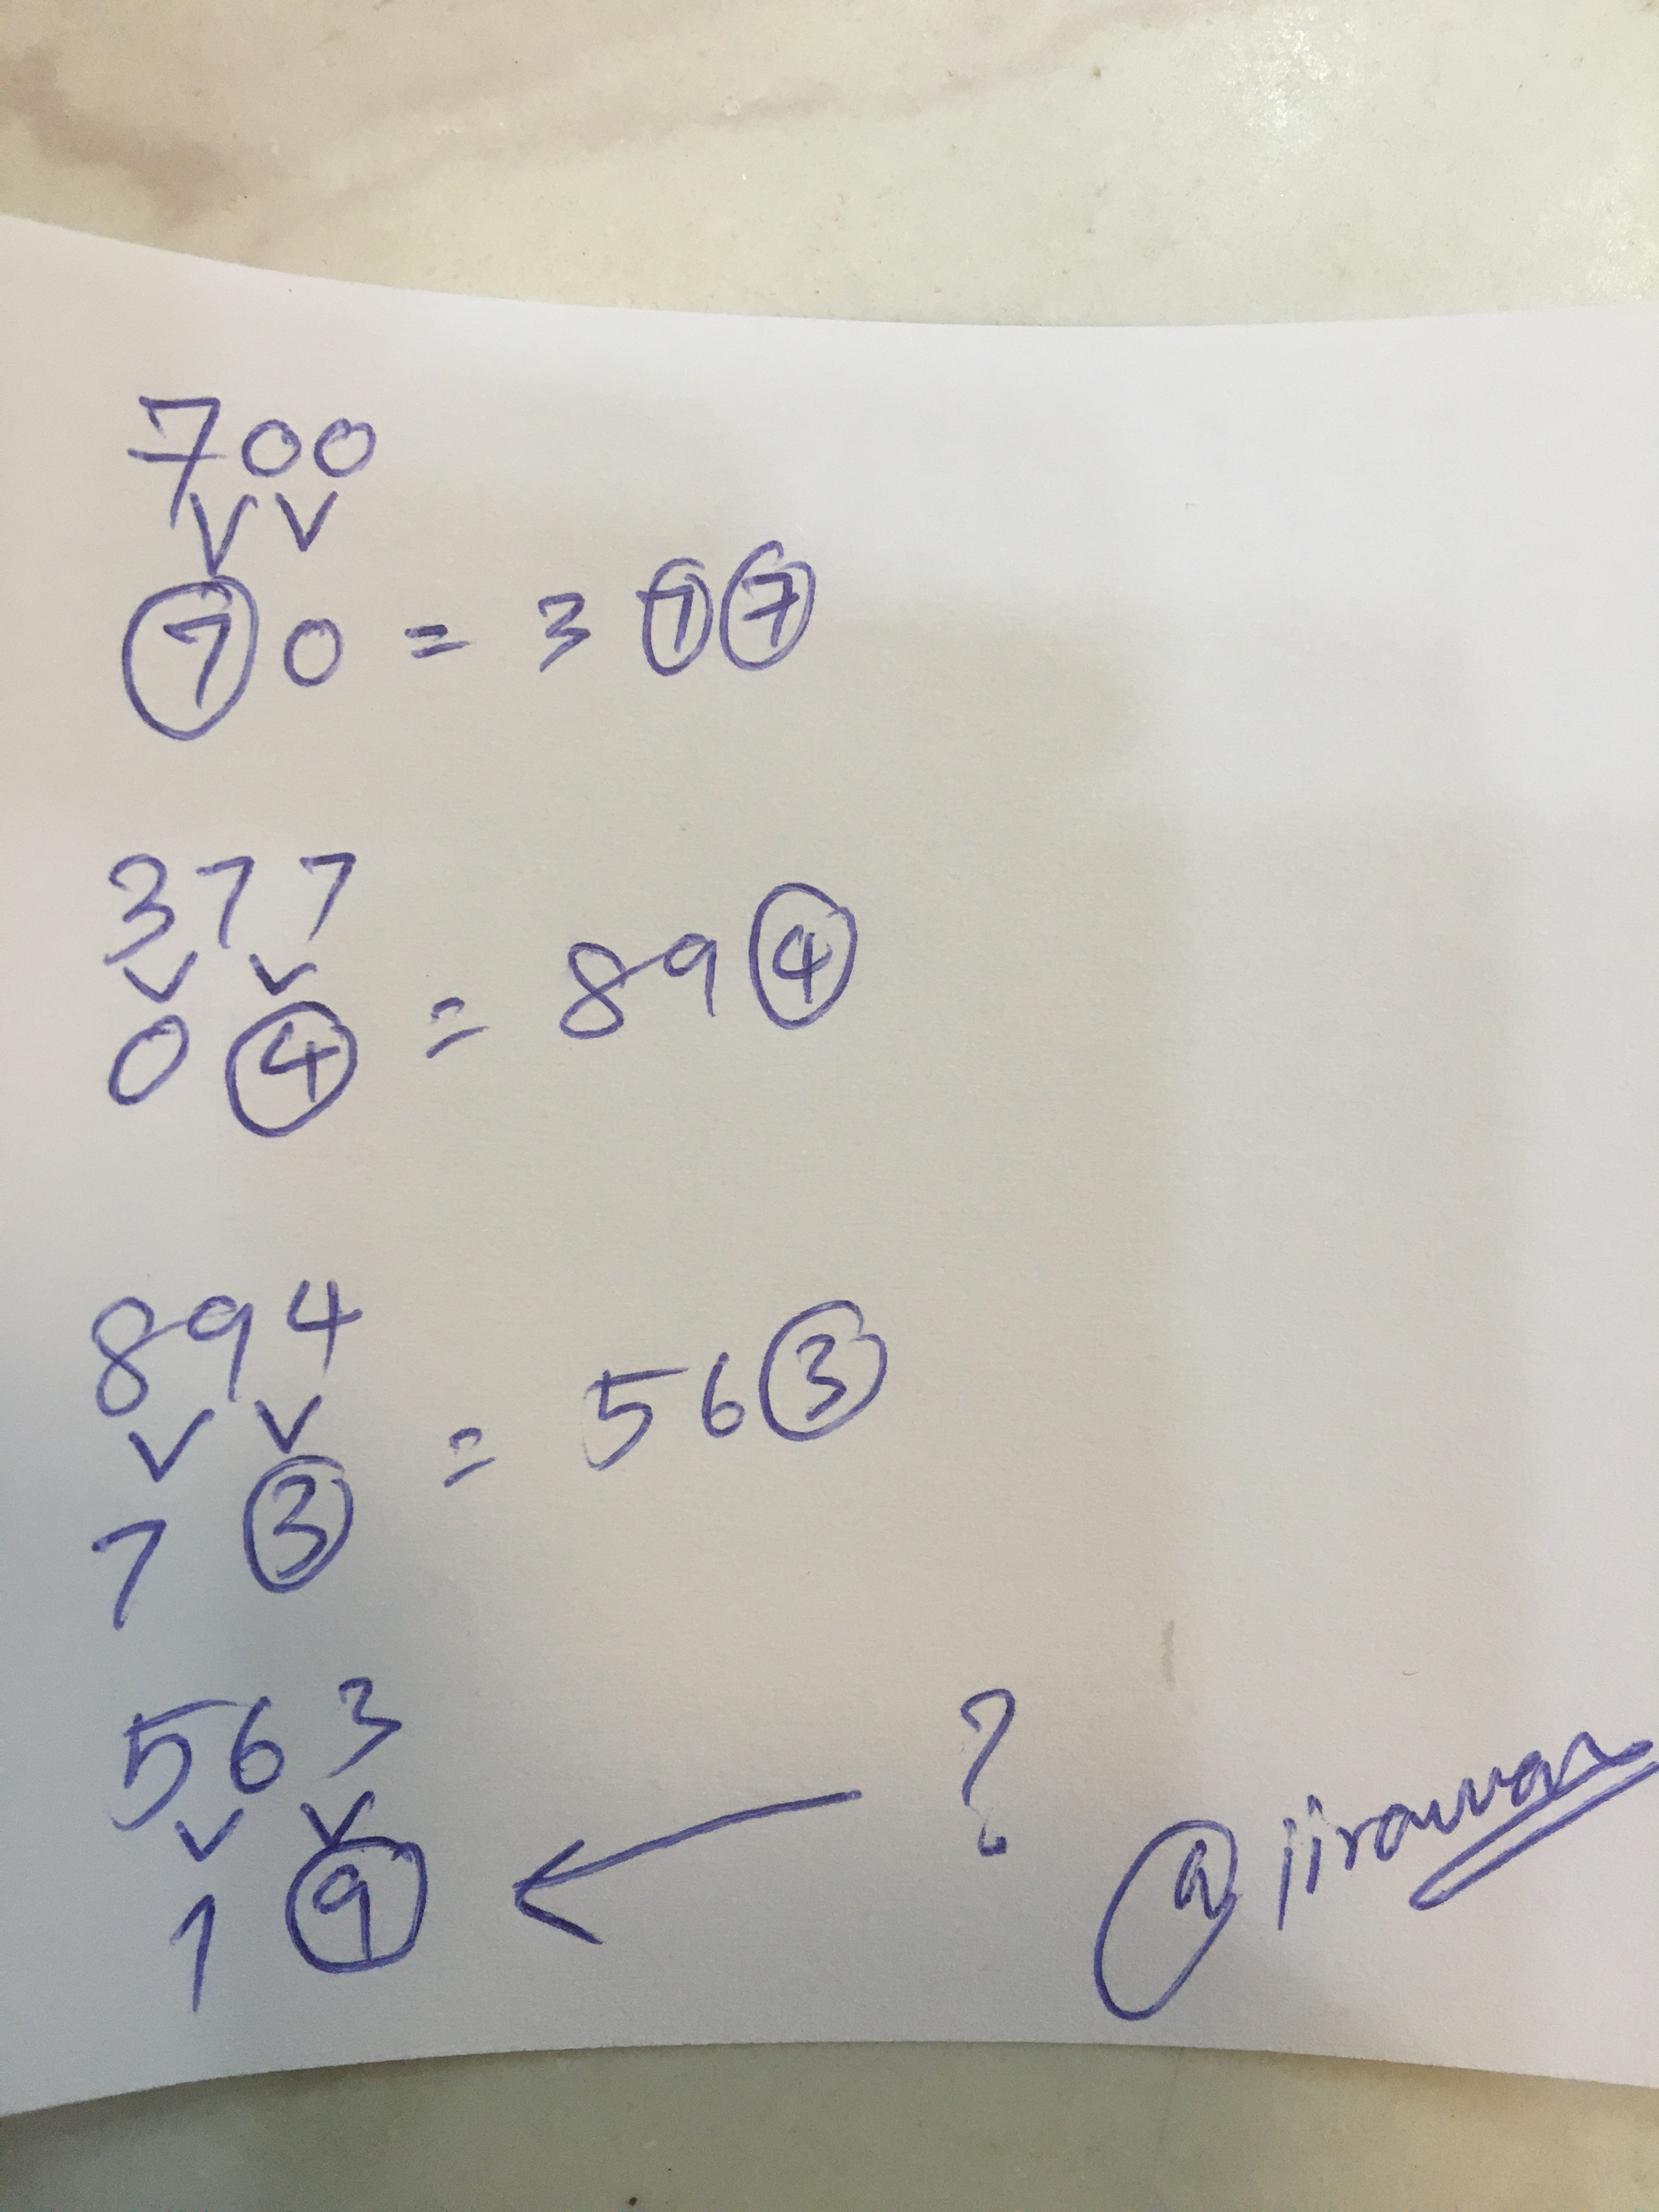 700
VV
70 = 377
377
VV
04 = 894
894
VV
73 = 563
563
VV
19 ← ?
@jirawan